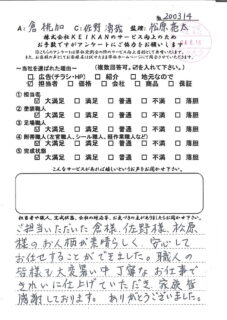 200314
A:倉 桃加 C:佐野 監理:松原 亮太
株式会社KEIKANのサービス向上のため
お手数ですがアンケートにご協力をお願いします
～当社を選ばれた理由～ (複数回答可。☑を入れて下さい。)
□ 広告(チラシ・HP) □ 紹介 □ 地元なので
☑ 担当者 □ 価格 □ 会社 □ 商品 □ 保証
① 担当者
☑ 大満足 □ 満足 □ 普通 □ 不満 □ 落胆
② 塗装職人
☑ 大満足 □ 満足 □ 普通 □ 不満 □ 落胆
③ 足場職人
☑ 大満足 □ 満足 □ 普通 □ 不満 □ 落胆
④ 附帯職人(左官職人、シール職人、板金職人、その他職人)
☑ 大満足 □ 満足 □ 普通 □ 不満 □ 落胆
⑤ 完成状態
☑ 大満足 □ 満足 □ 普通 □ 不満 □ 落胆
こんなサービスがあれば嬉しいというお声をお聞かせ下さい。
ご担当いただいた倉様、佐野様、松原
様のお人柄が素晴らしく、安心して
お任せすることができました。職人の
皆様も大変暑い中丁寧なお仕事で
きれいに仕上げていただき、家族皆
感謝しております。ありがとうございました。